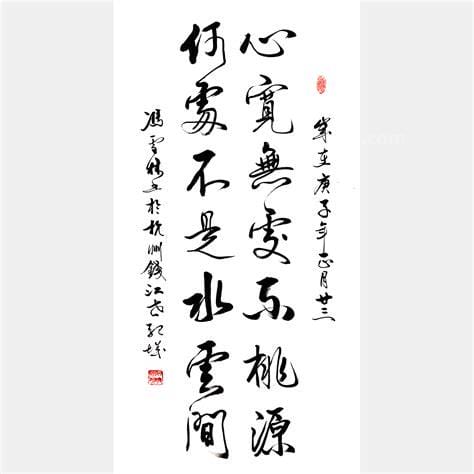 歲在庚子年正月廿三
心寬無處不桃源
何處不是水雲間
馮雪 書於杭州錢江世紀城